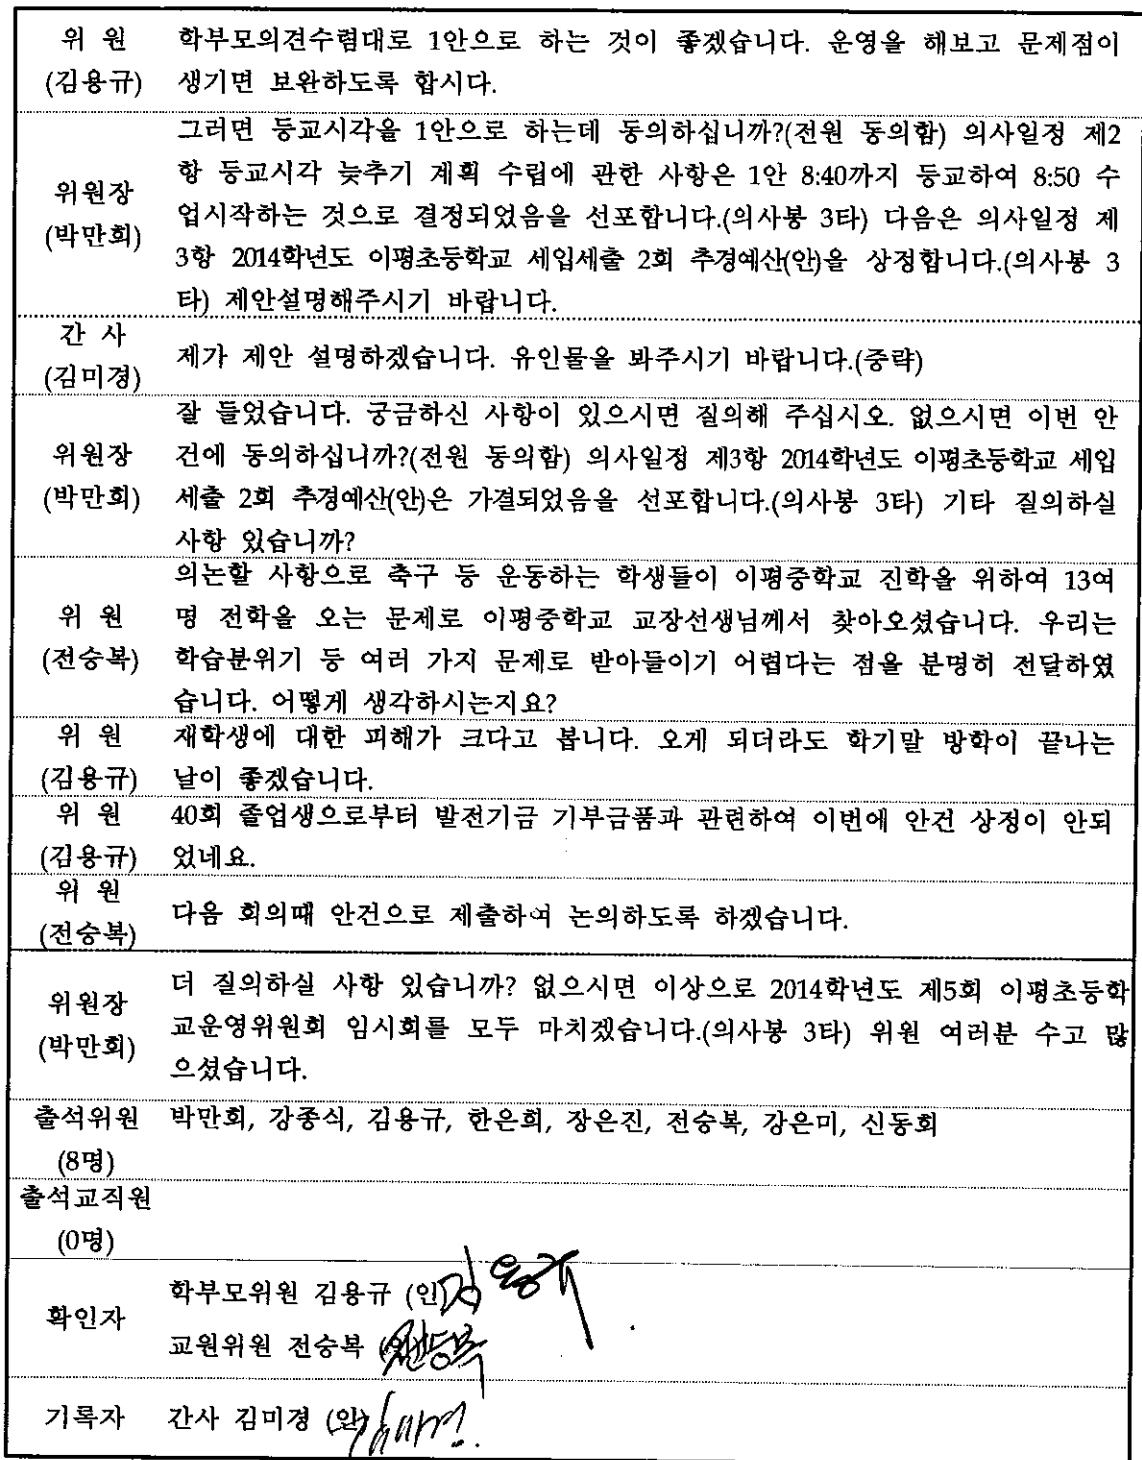 위 원 학부모의견수렴대로 1안으로 하는 것이 좋겠습니다. 운영을 해보고 문제점이
(김용규) 생기면 보완하도록 합시다.
그러면 등교시각을 1안으로 하는데 동의하십니까?(전원 동의함) 의사일정 제2
항 등교시각 늦추기 계획 수립에 관한 사항은 1안 8:40까지 등교하여 8:50 수
위원장
업시작하는 것으로 결정되었음을 선포합니다.(의사봉 3타) 다음은 의사일정 제
(박만회)
3항 2014학년도 이평초등학교 세입세출 2회 추경예산(안)을 상정합니다.(의사봉 3
타) 제안설명해주시기 바랍니다.
간 사
제가 제안 설명하겠습니다. 유인물을 봐주시기 바랍니다.(중략)
(김미경)
잘 들었습니다. 궁금하신 사항이 있으시면 질의해 주십시오. 없으시면 이번 안
위원장 건에 동의하십니까?(전원 동의함) 의사일정 제3항 2014학년도 이평초등학교 세입
(박만회) 세출 2회 추경예산(안)은 가결되었음을 선포합니다.(의사봉 3타) 기타 질의하실
사항 있습니까?
의논할 사항으로 축구 등 운동하는 학생들이 이평중학교 진학을 위하여 13여
위 원 명 전학을 오는 문제로 이평중학교 교장선생님께서 찾아오셨습니다. 우리는
(전승복) 학습분위기 등 여러 가지 문제로 받아들이기 어렵다는 점을 분명히 전달하였
습니다. 어떻게 생각하시는지요?
위 원 재학생에 대한 피해가 크다고 봅니다. 오게 되더라도 학기말 방학이 끝나는
(김용규) 날이 좋겠습니다.
위 원 40회 졸업생으로부터 발전기금 기부금품과 관련하여 이번에 안건 상정이 안되
(김용규) 었네요.
위 원
다음 회의때 안건으로 제출하여 논의하도록 하겠습니다.
(전승복)
더 질의하실 사항 있습니까? 없으시면 이상으로 2014학년도 제5회 이평초등학
위원장
교운영위원회 임시회를 모두 마치겠습니다.(의사봉 3타) 위원 여러분 수고 많
(박만회)
으셨습니다.
출석위원 박만회, 강종식, 김용규, 한은희, 장은진, 전승복, 강은미, 신동회
(8명)
출석교직원
(0명)
학부모위원 김용규 (인) 김용규
확인자
교원위원 전승복 (인) 전승복
기록자 간사 김미경 (인) 김미경